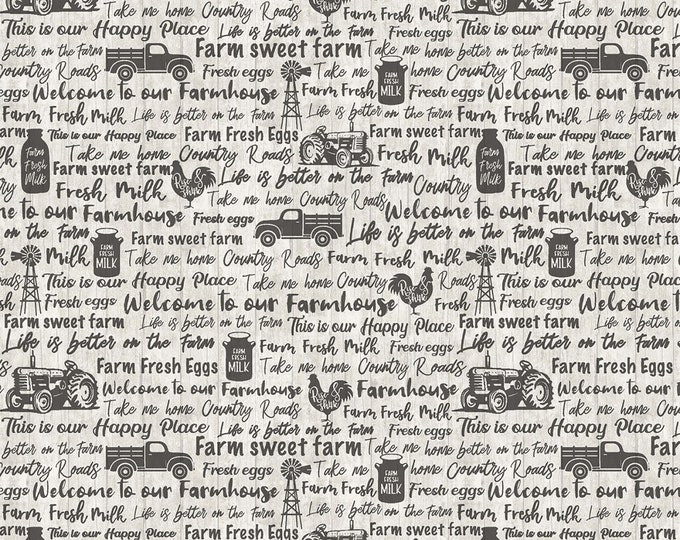 Farm Fresh Milk Take me home Country Roads Farm Fresh Eggs Farm sweet farm
This is our Happy Place Life is better on the Farm This is our Happy Place
better on the Farm Farm sweet farm Take me home Life is better on the Farm
Country Roads Fresh eggs Take me home Country Roads
Fresh eggs Welcome to our Farmhouse Farm Fresh FARM FRESH MILK Fresh eggs Welcome to our
Farm Fresh Milk Life is better on the Farm Farm Fresh Milk Life is better
farm This is our Happy Place Farm Fresh Eggs Farm sweet farm This is our Happy Place
Farm Fresh Milk Take me home Country Roads Fresh Milk Farm Fresh Milk Take me home
Farm sweet farm Life is better on the Farm Farm sweet
Fresh Milk Rise & Shine Take me home Country Roads Country Fresh Milk Rise & Shine
Welcome to our Farmhouse Fresh eggs Welcome to our Farmhouse
Farm sweet farm Life is better on the Farm Farm sweet farm
Milk FARM FRESH MILK Life is better on the Farm Fresh Milk Milk FARM FRESH MILK
This is our Happy Place Take me home Country Rise & Shine This is our Happy Place
Fresh eggs Welcome to our Farmhouse Fresh eggs Welcome
Farm sweet farm Life is better on the Farm This is our Happy Place Farm sweet farm
Life is better on the Farm FARM FRESH MILK Farm Fresh Milk Country Roads Life is better on the
Farm Fresh Eggs Take me home Country Roads Farm Fresh Eggs
Welcome to our Farmhouse Rise & Shine Farmhouse Welcome to our
Take me home Country Roads Farm Fresh Milk Take me home
This is our Happy Place Life is better on the Farm This is our Happy Place
better on the Farm Farm sweet farm Take me home Life is better on the Farm
Country Roads Fresh eggs Take me home FARM FRESH MILK Country Roads
eggs Welcome to our Farmhouse Farm Fresh Milk Fresh eggs Welcome to our
Farm Fresh Milk Life is better on the Farm Farm Fresh Milk Life is better
This is our Happy Place Farm Fresh Eggs Farm sweet farm This is our Happy Place